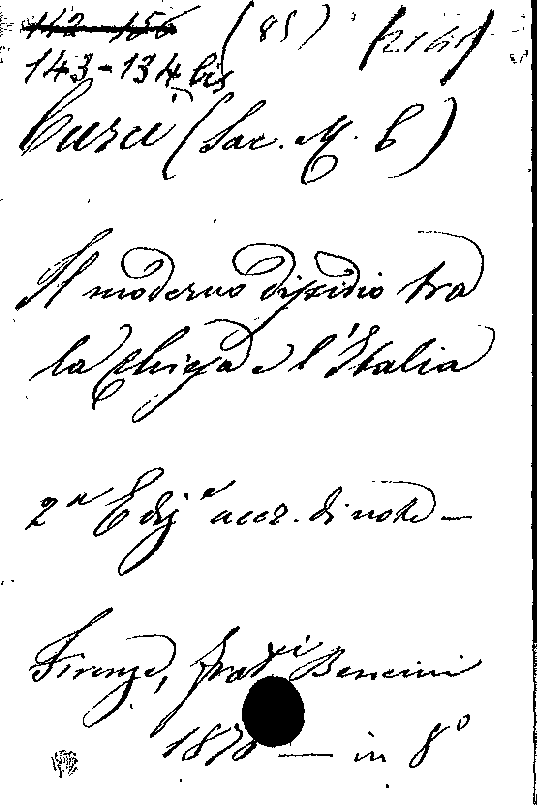 142-156 (85)
143-134 bis
Curci (Sac. M. C)
Il moderno dissidio tra
la Chiesa e l'Italia
2a Edize accr. di note —
Firenze, frati Bencini
1878 — in 8º